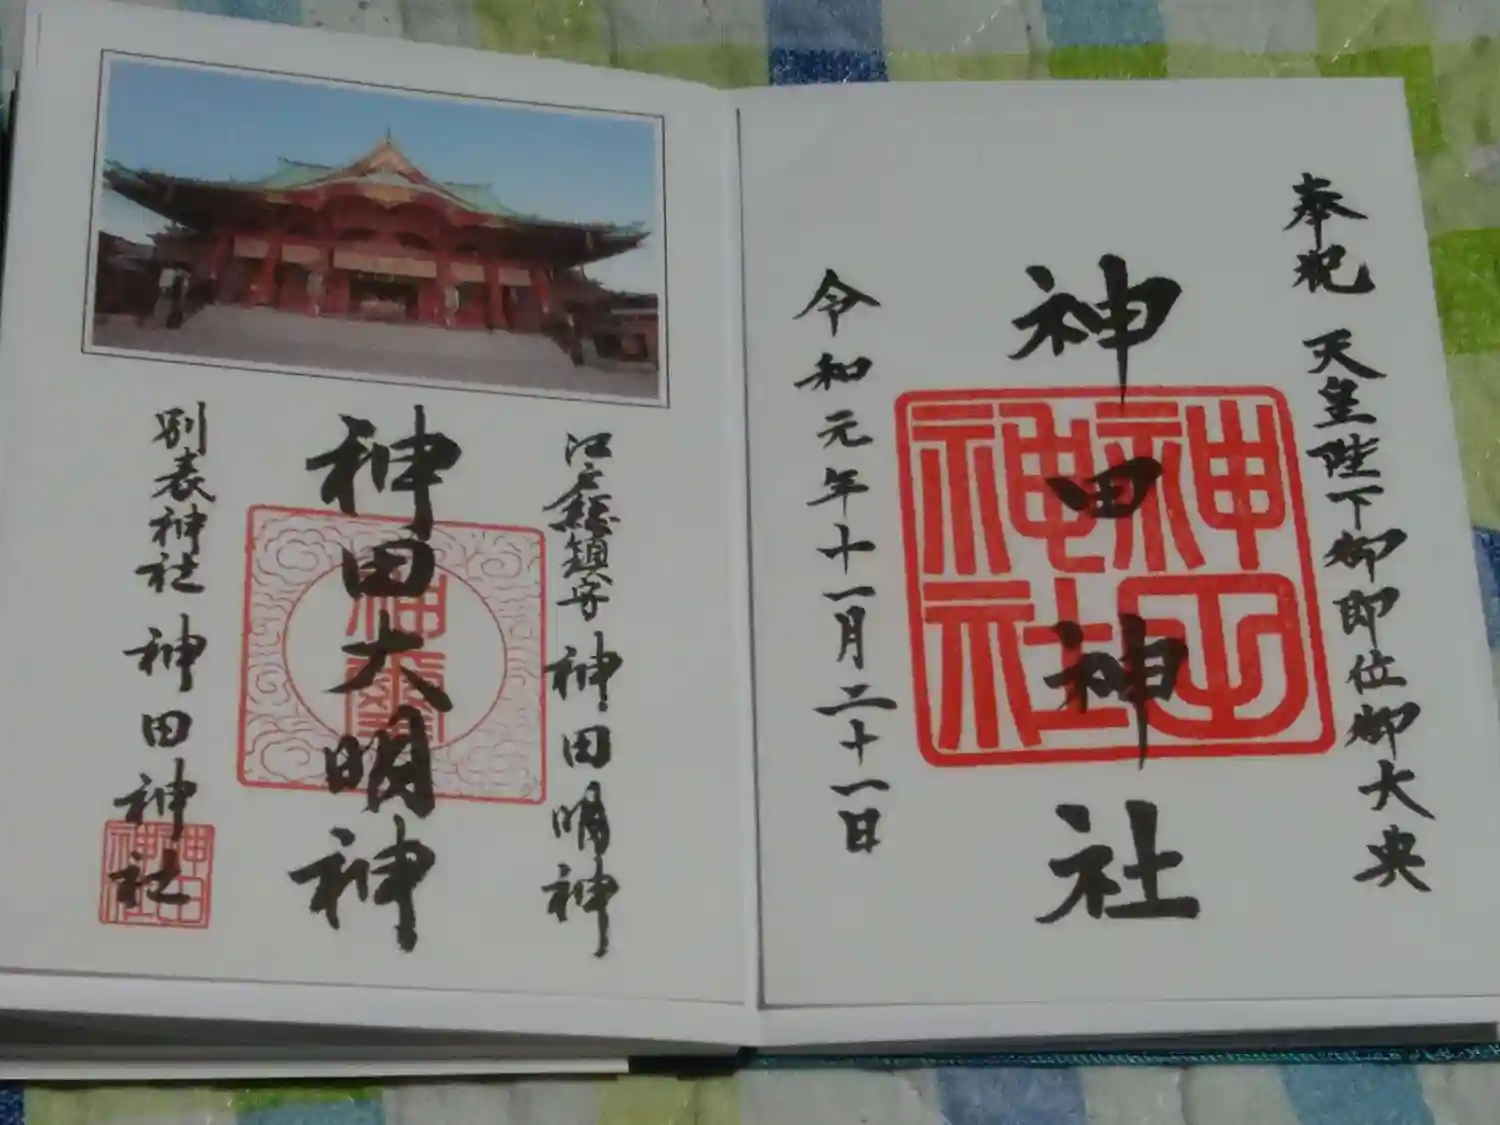 奉祝 天皇陛下御即位御大典
神田神社
神田神社
令和元年十一月二十一日
江戸総鎮守 神田明神
神田大明神
神璽
別表神社 神田神社
神田神社